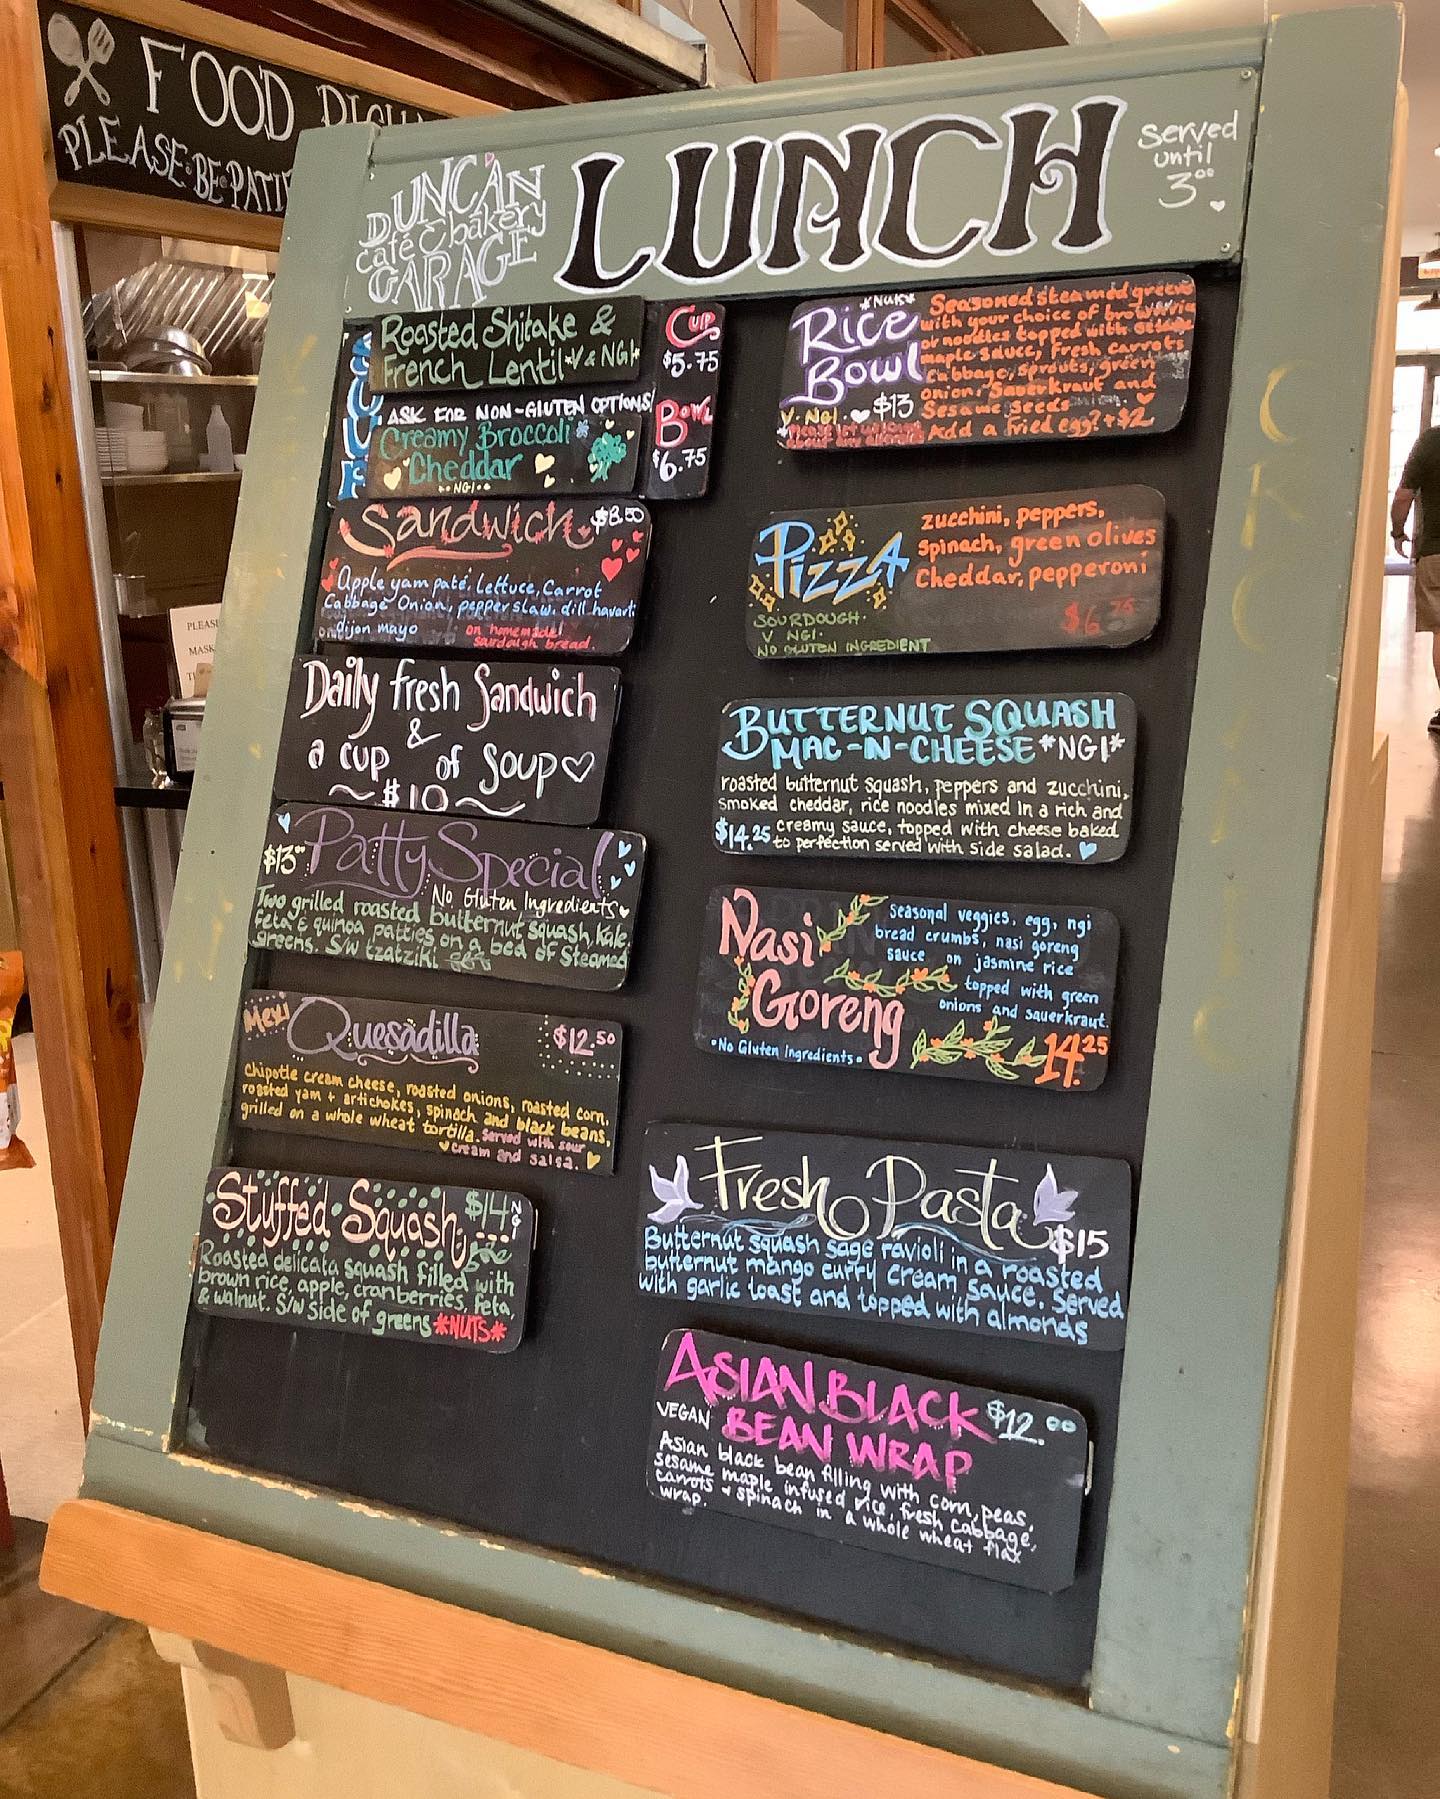 FOOD
PLEASE·BE·
DUNCAN
café & bakery
GARAGE
LUNCH
served
until
3°°
SOUP
Roasted Shitake &
French Lentil *V & NGI*
ASK FOR NON-GLUTEN OPTIONS!
Creamy Broccoli
Cheddar
·· NGI ··
CUP
$5.75
BOWL
$6.75
Sandwich $8.50
Apple yam paté, lettuce, Carrot
Cabbage Onion, pepper slaw, dill havarti
dijon mayo on homemade!
sourdough bread.
Daily fresh Sandwich
&
a cup of Soup
~$10~
$13°° Patty Special
No Gluten Ingredients
Two grilled roasted butternut squash, kale,
feta & quinoa patties on a bed of steamed
greens. S/W tzatziki
Mexi Quesadilla $12.50
Chipotle cream cheese, roasted onions, roasted corn,
roasted yam + artichokes, spinach and black beans,
grilled on a whole wheat tortilla. Served with sour
cream and salsa.
Stuffed Squash $14 NGI
Roasted delicata squash filled with
brown rice, apple, cranberries, feta,
& walnut. S/W side of greens *NUTS*
*Nuts*
Rice
Bowl
V·NGI· $13
Seasoned steamed greens
with your choice of brown rice
or noodles topped with sesame
maple sauce, fresh carrots
cabbage, sprouts, green
onion, Sauerkraut and
Sesame Seeds
Add a fried egg? +$2
Pizza
SOURDOUGH·
V NGI·
NO GLUTEN INGREDIENT
zucchini, peppers,
spinach, green olives
Cheddar, pepperoni
$6.75
BUTTERNUT SQUASH
MAC-N-CHEESE *NGI*
roasted butternut squash, peppers and zucchini,
smoked cheddar, rice noodles mixed in a rich and
$14.25 creamy sauce, topped with cheese baked
to perfection served with side salad.
Nasi
Goreng
·No Gluten Ingredients·
Seasonal veggies, egg, ngi
bread crumbs, nasi goreng
sauce on jasmine rice
topped with green
onions and sauerkraut.
14.25
Fresh Pasta $15
Butternut squash sage ravioli in a roasted
butternut mango curry cream sauce. Served
with garlic toast and topped with almonds
ASIAN BLACK $12.°°
VEGAN BEAN WRAP
Asian black bean filling with corn, peas,
sesame maple infused rice, fresh cabbage,
carrots + spinach in a whole wheat flax
wrap.
PLEASE
MASK